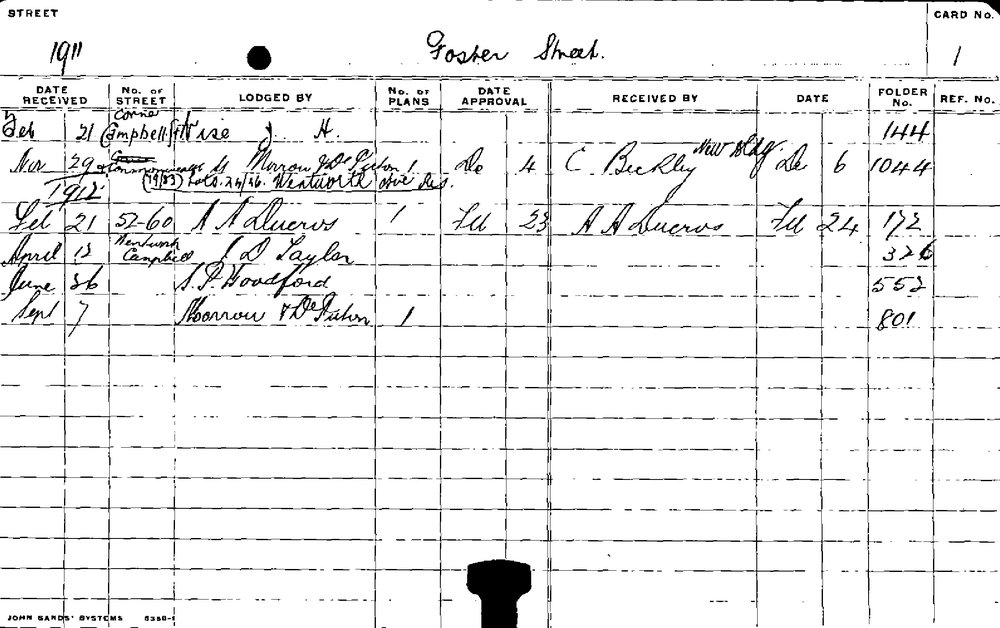 STREET
CARD No.
1911 Foster Street. 1
DATE RECEIVED No. OF STREET LODGED BY No. OF PLANS DATE APPROVAL RECEIVED BY DATE FOLDER No. REF. No.
Corner
Feb 21 Campbell St Wise J. H. 144
New Bldg
Nov 29 Commonwealth St Morrow & De Putron 1 De 4 C Beckley De 6 1044
(19/83) Lots 24/26. Wentworth Ave Res.
1912
Feb 21 52-60 A A Ducros 1 Feb 23 A A Ducros Feb 24 172
Wentworth
April 12 Campbell J D Taylor 326
June 26 S. P. Woodford 552
Sept 7 Morrow & De Putron 1 801
JOHN SANDS' SYSTEMS